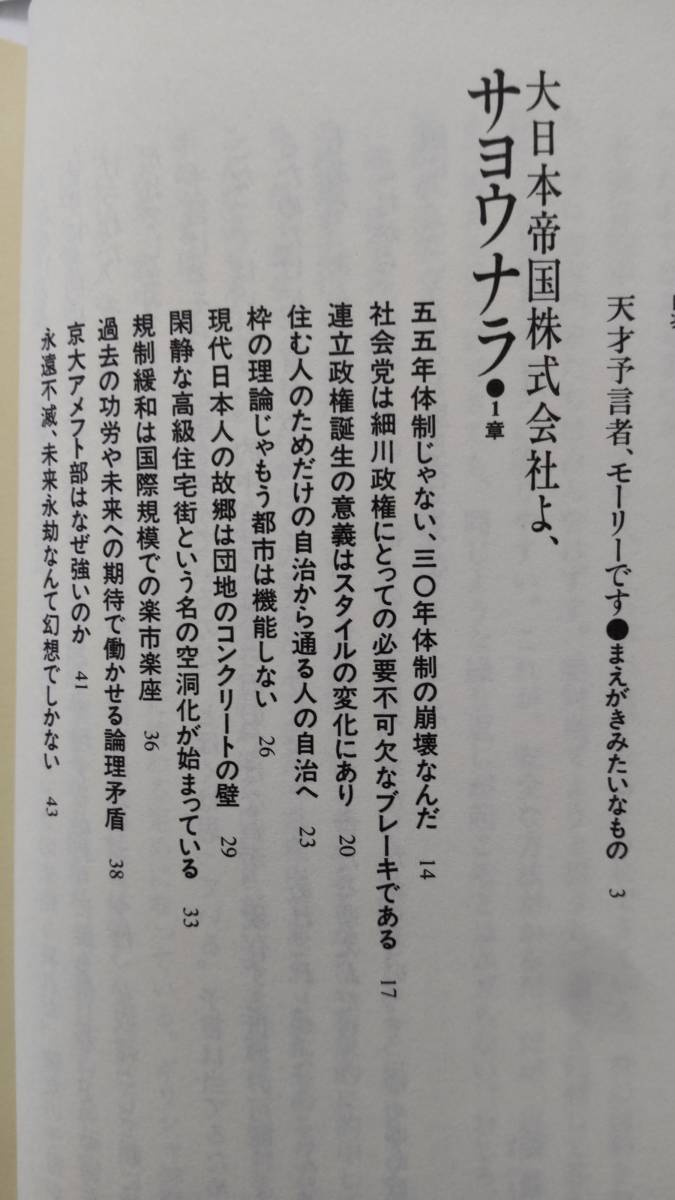 天才予言者、モーリーです●まえがきみたいなもの 3
大日本帝国株式会社よ、
サヨウナラ●1章
五五年体制じゃない、三〇年体制の崩壊なんだ 14
社会党は細川政権にとっての必要不可欠なブレーキである 17
連立政権誕生の意義はスタイルの変化にあり 20
住む人のためだけの自治から通る人の自治へ 23
枠の理論じゃもう都市は機能しない 26
現代日本人の故郷は団地のコンクリートの壁 29
閑静な高級住宅街という名の空洞化が始まっている 33
規制緩和は国際規模での楽市楽座 36
過去の功労や未来への期待で働かせる論理矛盾 38
京大アメフト部はなぜ強いのか 41
永遠不滅、未来永劫なんて幻想でしかない 43